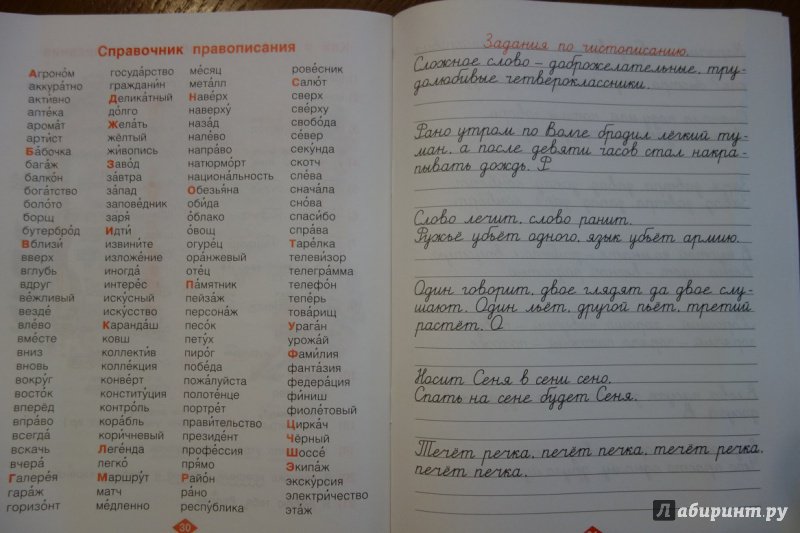 Справочник правописания
Агроно́м
аккура́тно
акти́вно
апте́ка
арома́т
арти́ст
Ба́бочка
бага́ж
балко́н
бога́тство
боло́то
борщ
бутербро́д
Вблизи́
вверх
вглубь
вдруг
ве́жливый
везде́
вле́во
вме́сте
вниз
вновь
вокру́г
восто́к
вперёд
впра́во
всегда́
вскачь
вчера́
Галере́я
гара́ж
горизо́нт
госуда́рство
граждани́н
Делика́тный
до́лго
Жела́ть
жёлтый
жи́вопись
Заво́д
за́втра
за́пад
запове́дник
заря́
Идти́
извини́те
изложе́ние
иногда́
интере́с
иску́сный
иску́сство
Каранда́ш
ковш
коллекти́в
колле́кция
конве́рт
конститу́ция
контро́ль
кора́бль
кори́чневый
Леге́нда
легко́
Маршру́т
матч
ме́дленно
ме́сяц
мета́лл
Наве́рх
наверху́
наза́д
нале́во
напра́во
натюрмо́рт
национа́льность
Обезья́на
оби́да
о́блако
о́вощ
огуре́ц
ора́нжевый
оте́ц
Па́мятник
пейза́ж
персона́ж
песо́к
пету́х
пиро́г
побе́да
пожа́луйста
полоте́нце
портре́т
прави́тельство
президе́нт
профе́ссия
пря́мо
Райо́н
ра́но
респу́блика
рове́сник
Салю́т
сверх
све́рху
свобо́да
се́вер
секу́нда
скотч
сле́ва
снача́ла
сно́ва
спаси́бо
спра́ва
Таре́лка
телеви́зор
телегра́мма
телефо́н
тепе́рь
това́рищ
Урага́н
урожа́й
Фами́лия
фанта́зия
федера́ция
фи́ниш
фиоле́товый
Цирка́ч
Чёрный
Шоссе́
Экипа́ж
экску́рсия
электри́чество
эта́ж
30
Задания по чистописанию.
Сложное слово – доброжелательные, тру-
долюбивые четвероклассники.
Рано утром по Волге бродил лёгкий ту-
ман, а после девяти часов стал накра-
пывать дождь. Р
Слово лечит, слово ранит.
Ружьё убьёт одного, язык убьёт армию.
Один говорит, двое глядят да двое слу-
шают. Один льёт, другой пьёт, третий
растёт. О
Носит Сеня в сени сено.
Спать на сене будет Сеня.
Течёт речка, печёт печка, течёт речка,
печёт печка.
Лабиринт.ру